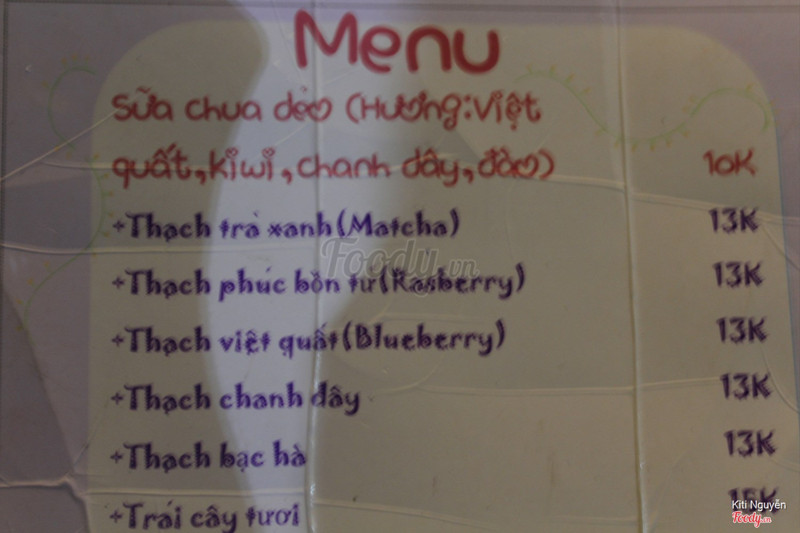 Menu
Sữa chua dẻo (Hương:Việt
quất,kiwi,chanh dây,đào) 10K
+Thạch trà xanh(Matcha) 13K
Foody.vn
+Thạch phúc bồn tử(Rasberry) 13K
+Thạch việt quất(Blueberry) 13K
+Thạch chanh dây 13K
+Thạch bạc hà 13K
+Trái cây tươi 15K
Kiti Nguyễn
Foody.vn